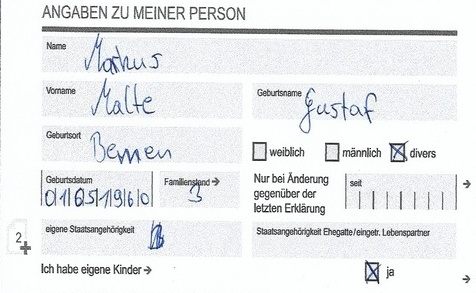 ANGABEN ZU MEINER PERSON
Name
Markus
Vorname
Malte
Geburtsname
Gustaf
Geburtsort
Bemen
weiblich männlich divers
Geburtsdatum
01051960
Familienstand →
3
Nur bei Änderung
gegenüber der
letzten Erklärung
seit
2
eigene Staatsangehörigkeit
Staatsangehörigkeit Ehegatte/eingetr. Lebenspartner
Ich habe eigene Kinder → ja